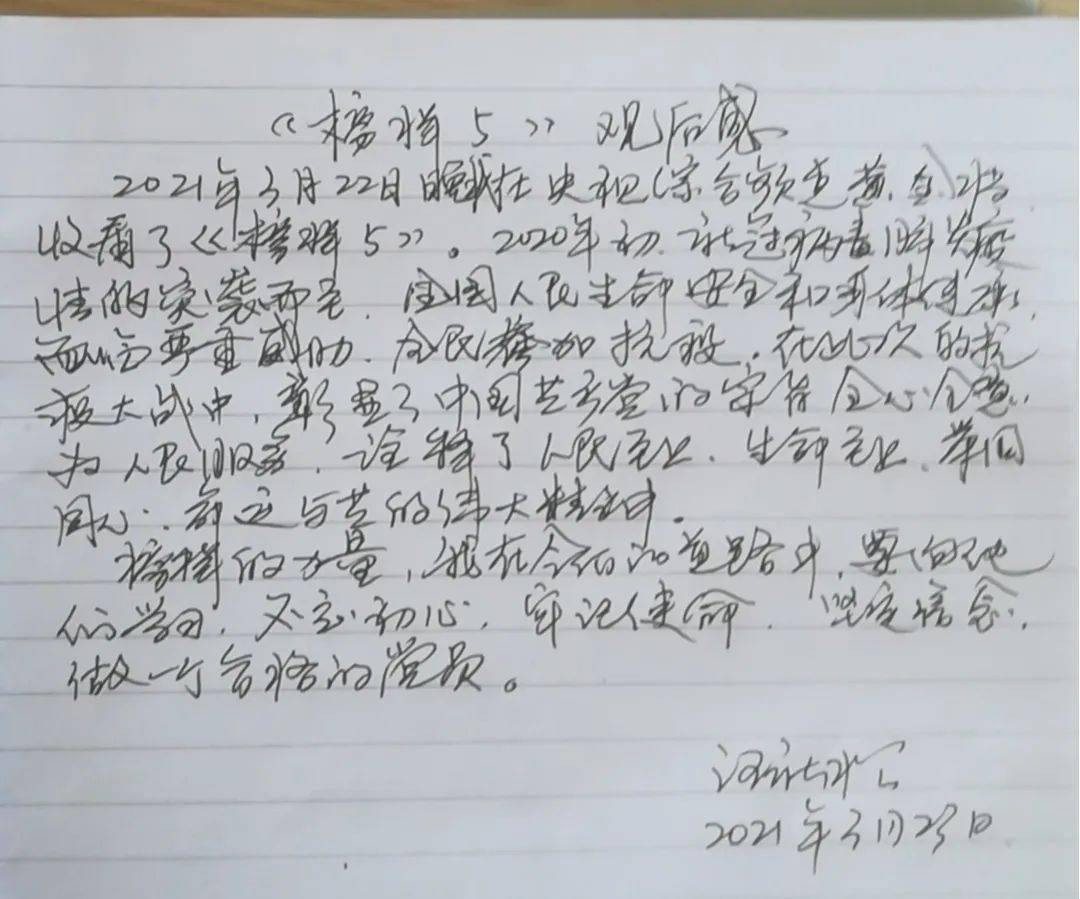 《榜样5》观后感
2021年3月22日晚我在央视综合频道黄金档
收看了《榜样5》。2020年初,新冠病毒肺炎疫
情的突袭而至,全国人民生命安全和身体健康
面临严重威胁,全民参加抗疫,在此次的抗
疫大战中,彰显了中国共产党的宗旨全心全意
为人民服务,诠释了人民至上,生命至上,举国
同心,命运与共的伟大精神。
榜样的力量,我在今后的道路中,要向他
们学习,不忘初心,牢记使命,坚定信念,
做一个合格的党员。
2021年3月23日